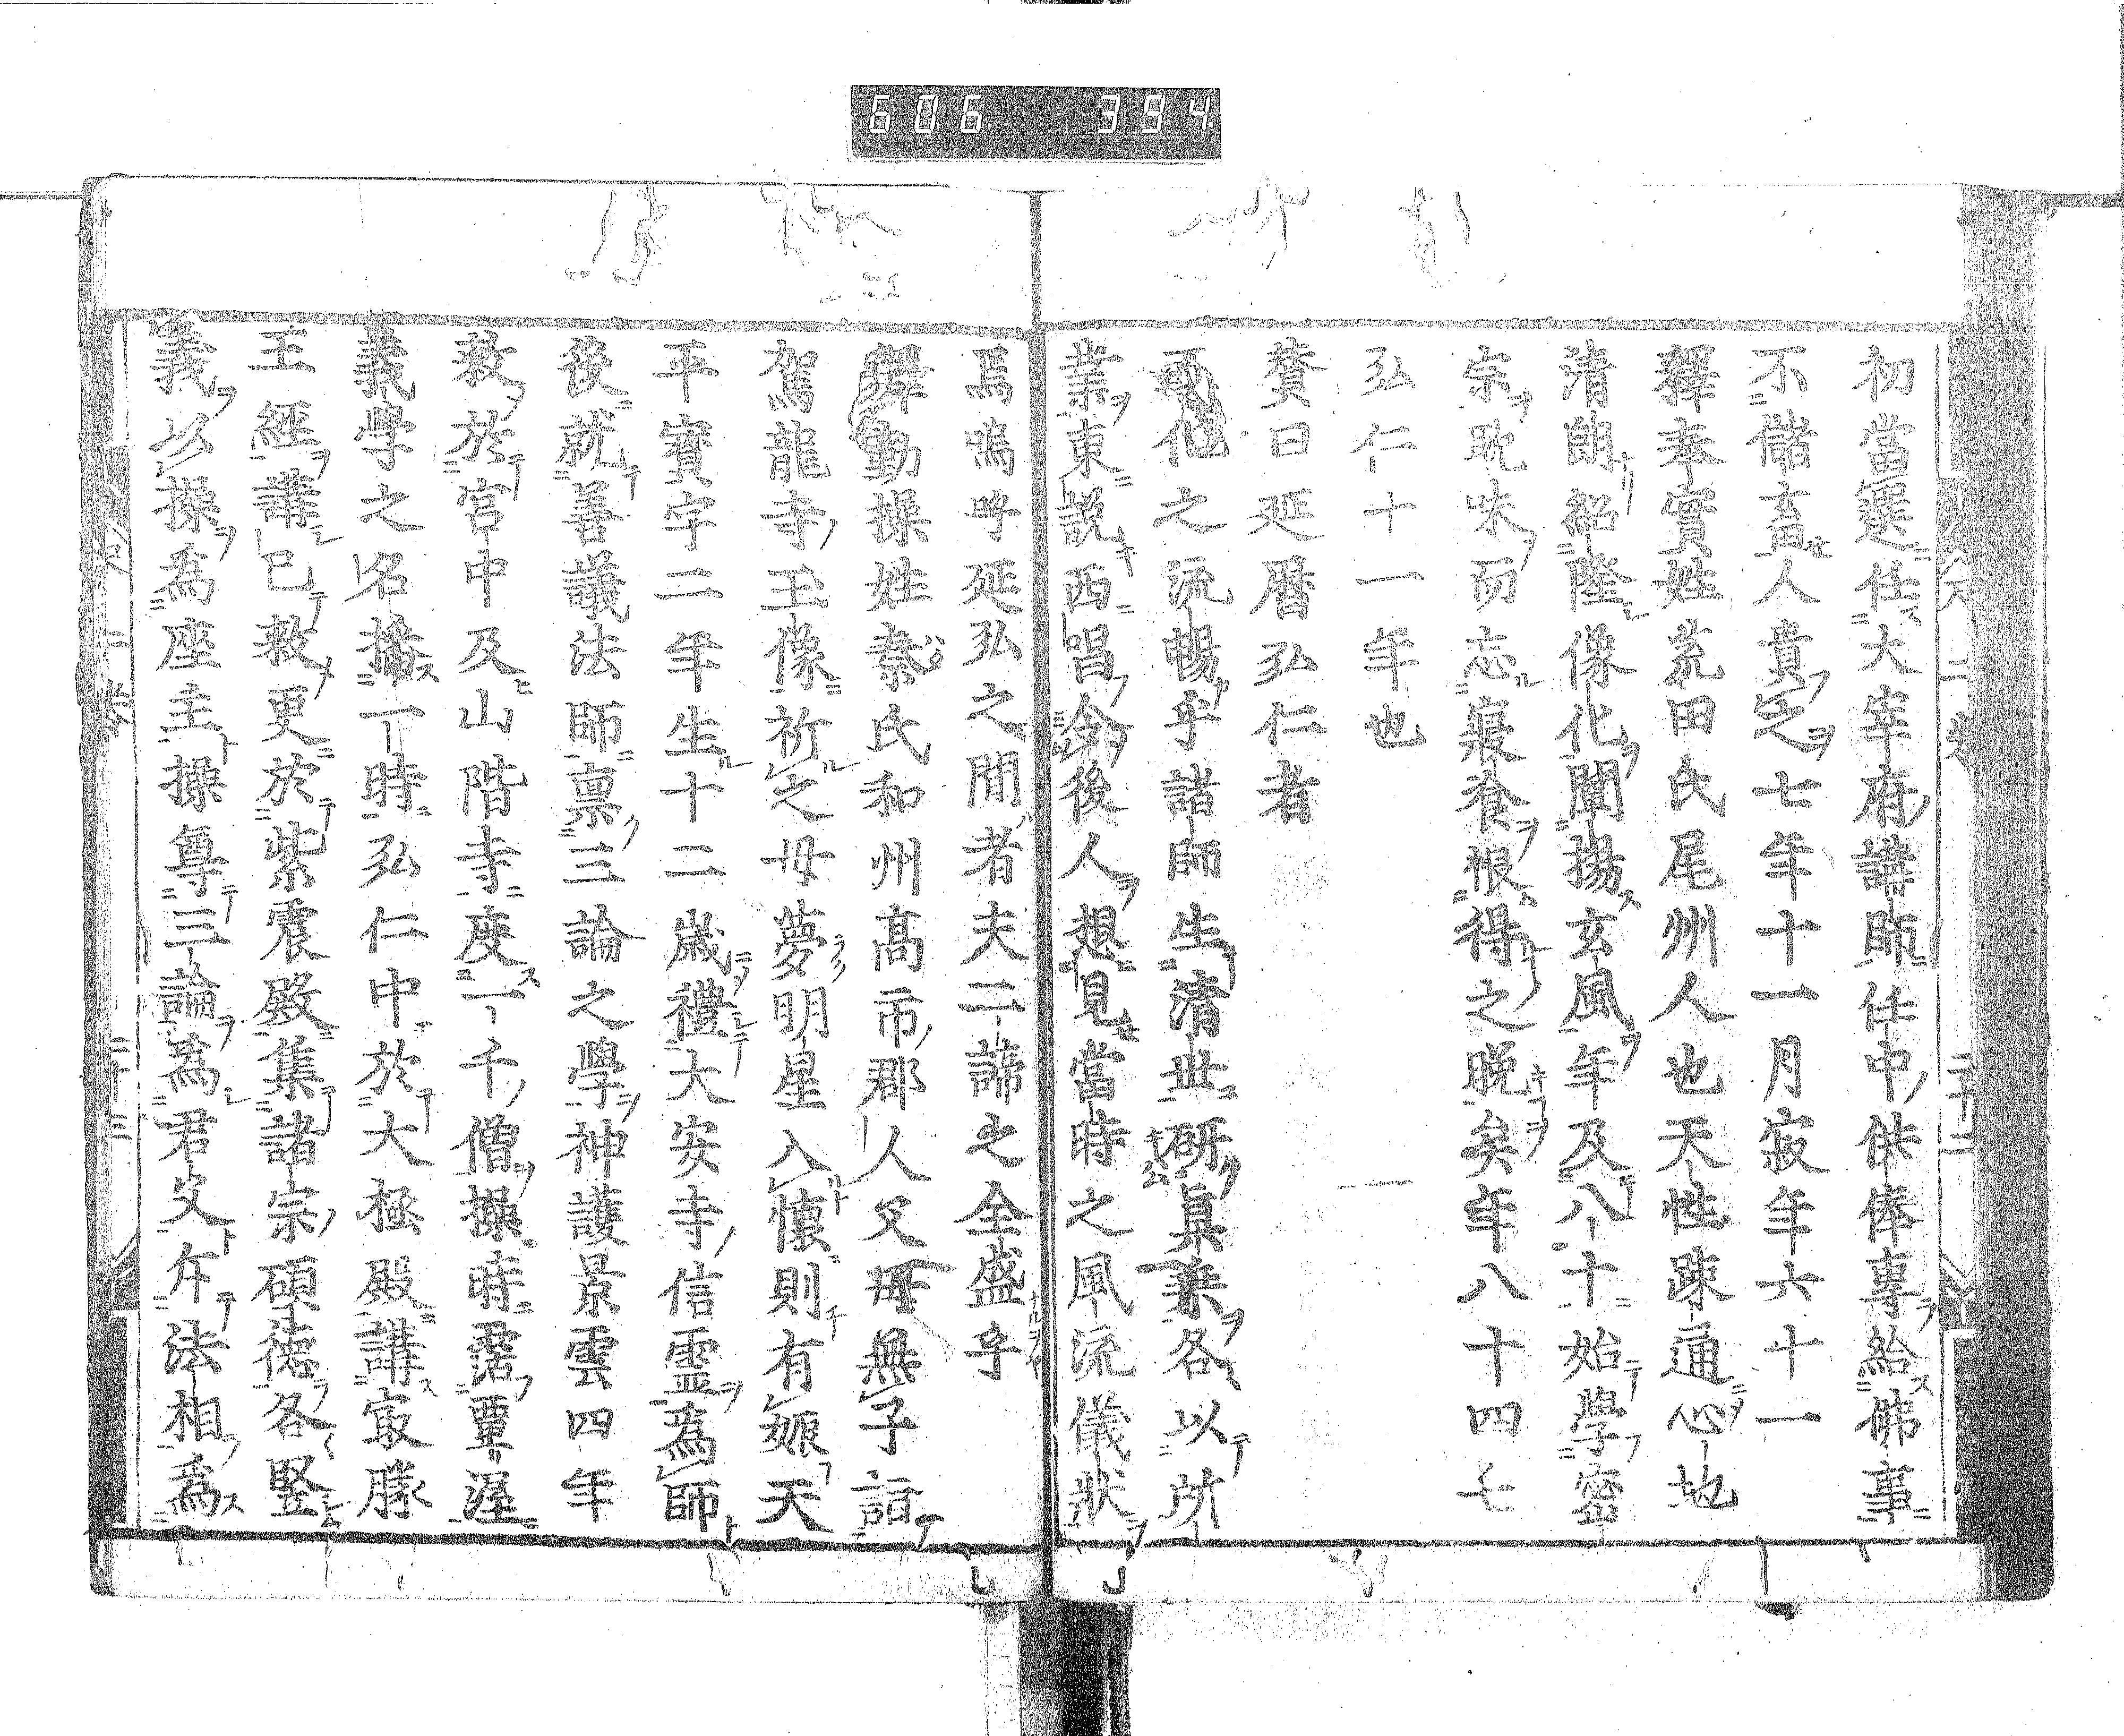 606 394
初當選任大宰府講師任中供俸專給佛事
不儲畜人貴之七年十一月寂年六十一
釋奉實姓荒田氏尾州人也天性踈通心地
清朗紹隆像化闡揚玄風年及八十始學密
宗耽味而忘寢飡恨得之晚矣年八十四七
弘仁十一年也
贊曰延曆弘仁者
之流暢乎諸師生清世研眞乘各以所
業東說西唱令後人想見當時之風流儀狀
焉嗚呼延弘之間者夫二諦之全盛乎
釋勤操姓秦氏和州高市郡人父母無子詣
駕龍寺玉像祈之母夢明星入懷則有娠天
平寶字二年生十二歲禮大安寺信靈為師
後就善議法師禀三論之學神護景雲四年
敕於宮中及山階寺度一千僧操時霑覃渥
義學之名播一時弘仁中於大極殿講最勝
王經講已敕更於紫震殿集諸宗碩德各竪
義以操為座主操尊三論為君父斥法相為